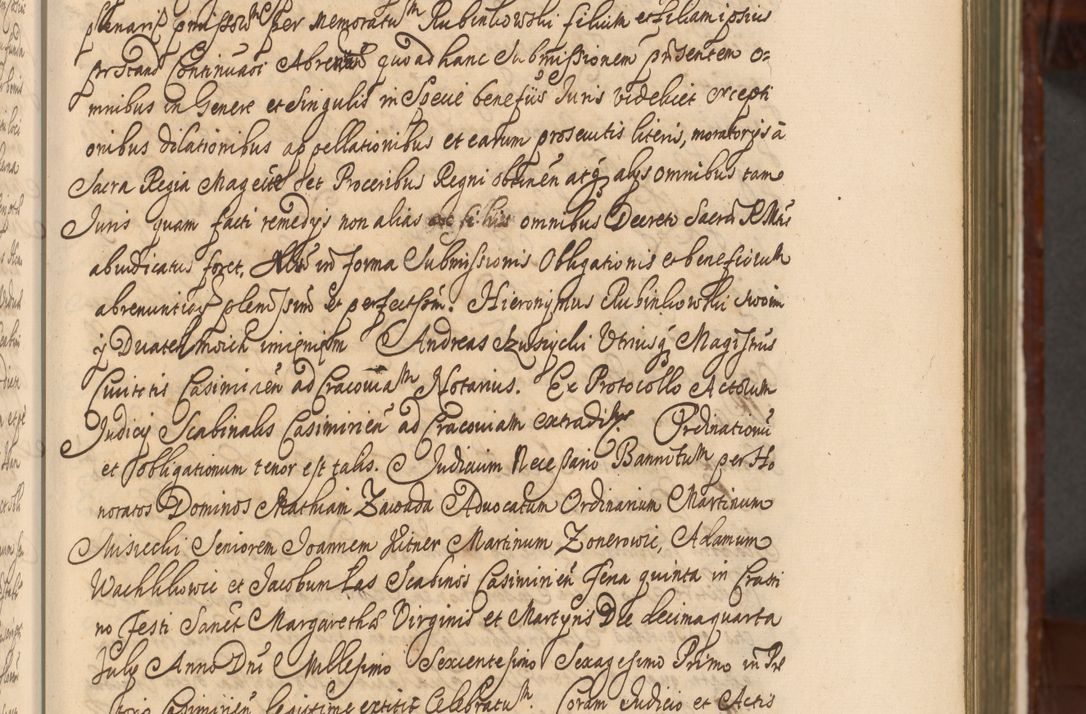 plenarie praemissorum per Memoratum Rubinkowski filium et filiam ipsius
praestandi Continuari Abrenũ quo ad hanc Submissionem pñsentem o=
mnibus in Genere et Singulis in Specie beneficiis Juris videlicet excepti
onibus dilationibus appellationibus et earum prosecutis literis, moratorijs á
Sacra Regia Magestẽ et Proceribus Regni obtinẽn atq alijs omnibus tam
Juris quam facti remedijs non alias omnibus Decreto Sacrã R Mtis
abiudicatus foret. in forma Submissionis Obligationis et beneficiorum
abrenuntiaõ plenissim̃ et perfectissim̃. Hieronymus Rubinkowski swoim
y Duateh moich imieniem Andreas Utriusq Magistrus
Civittis Casimirien̄ ad Cracoviam Notarius. Ex Protocollo Actorum
Judicij Scabinalis Casimirien̄ ad Cracoviam extradit. Ordinationũ
et obligationum tenor est talis. Judicium Necessario Bannitum per Ho
noratos Dominos Mathiam Zawada Advocatum Ordinarium Martinum
Misiecki Seniorem Joannem Kitner Martinum Zonerowic, Adamum
Wachlikowic et Jacobum Las Scabinos Casimirien̄ Feria quinta in Crasti
no Festi Sanct Margarethæ Virginis et Martyris Die decima quarta
Julij Anno Dn̄i Millesimo Sexcentesimo Sexagesimo Primo in Præ
torio Casimirien̄ legitime extitit Celebratum. Coram Judicio et Actis